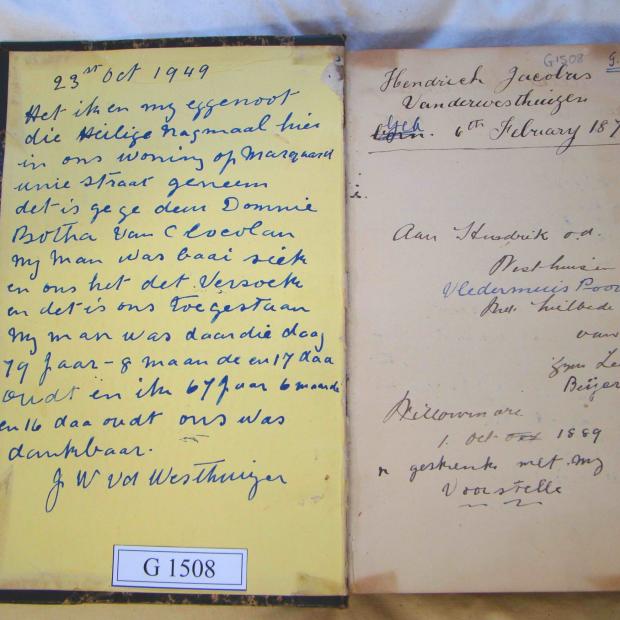 23st Oct 1949
Het ik en my eggenoot
die Heilige Nagmaal hier
in ons woning op Marquard
unie straat geneem
det is gege deur Dominie
Botha Van Clocolan
My Man was baai siek
en ons het det Versoek
en det is ons toegestaan
My man was daardie dag
79 Jaar - 8 maande en 17 daa
oudt en ik 67 Jaar 6 maande
en 16 daa oudt ons was
dankbaar.
J W Vd Westhuizer
G 1508
G1508
Hendrich Jacobus
Vanderwesthuizen
Geb 6th February 187
Aan Hendrik v.d.
Westhuisen
Vledermuis Poo
van
Beijer
Willowmore
1. Oct 1889
geskenk met my
Voorstelle